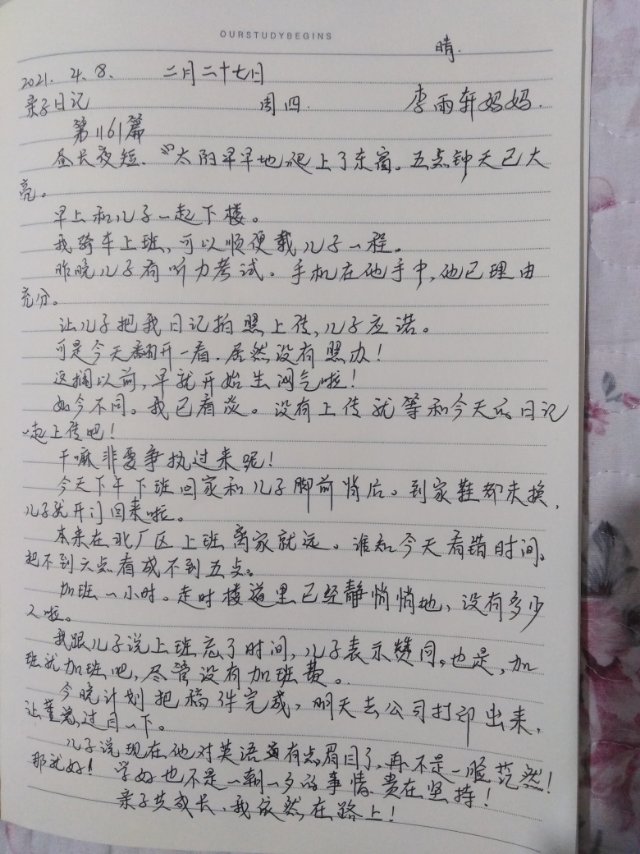 OURSTUDYBEGINS
晴.
2021. 4. 8. 二月二十七日
亲子日记 周四 李雨轩妈妈.
第1161篇
昼长夜短. 太阳早早地爬上了东窗。五点钟天已大
亮。
早上和儿子一起下楼。
我骑车上班,可以顺便载儿子一程。
昨晚儿子有听力考试。手机在他手中,他已理由
充分。
让儿子把我日记拍照上传,儿子应诺。
可是今天翻开一看.居然没有照办!
这搁以前,早就开始生闷气啦!
如今不同。我已看淡。没有上传就等和今天的日记
一起上传吧!
干嘛非要争执过来呢!
今天下午下班回家和儿子脚前背后。到家鞋都未换,
儿子就开门回来啦。
本来在北厂区上班离家就远。谁知今天看错时间。
把不到六点看成不到五点。
加班一小时。走时楼道里已经静悄悄地,没有多少
人啦。
我跟儿子说上班忘了时间,儿子表示赞同。也是,加
班就加班吧,尽管没有加班费。
今晚计划把稿件完成,明天去公司打印出来,
让董总过目一下。
儿子说现在他对英语有点眉目了,再不是一脸茫然!
那就好!学好也不是一朝一夕的事情.贵在坚持!
亲子共成长、我依然在路上!